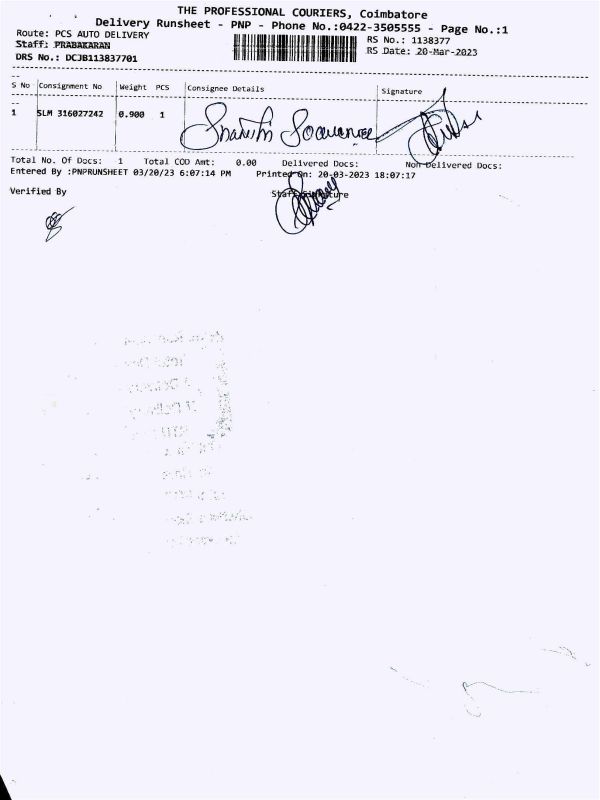 THE PROFESSIONAL COURIERS, Coimbatore
Delivery Runsheet - PNP - Phone No.:0422-3505555 - Page No.:1
Route: PCS AUTO DELIVERY
RS No.: 1138377
Staff: PRABAKARAN
RS Date: 20-Mar-2023
DRS No.: DCJB113837701
S No Consignment No Weight PCS Consignee Details Signature
1 SLM 316027242 0.900 1
Total No. Of Docs: 1 Total COD Amt: 0.00 Delivered Docs: Non Delivered Docs:
Entered By :PNPRUNSHEET 03/20/23 6:07:14 PM Printed On: 20-03-2023 18:07:17
Verified By Staff Signature